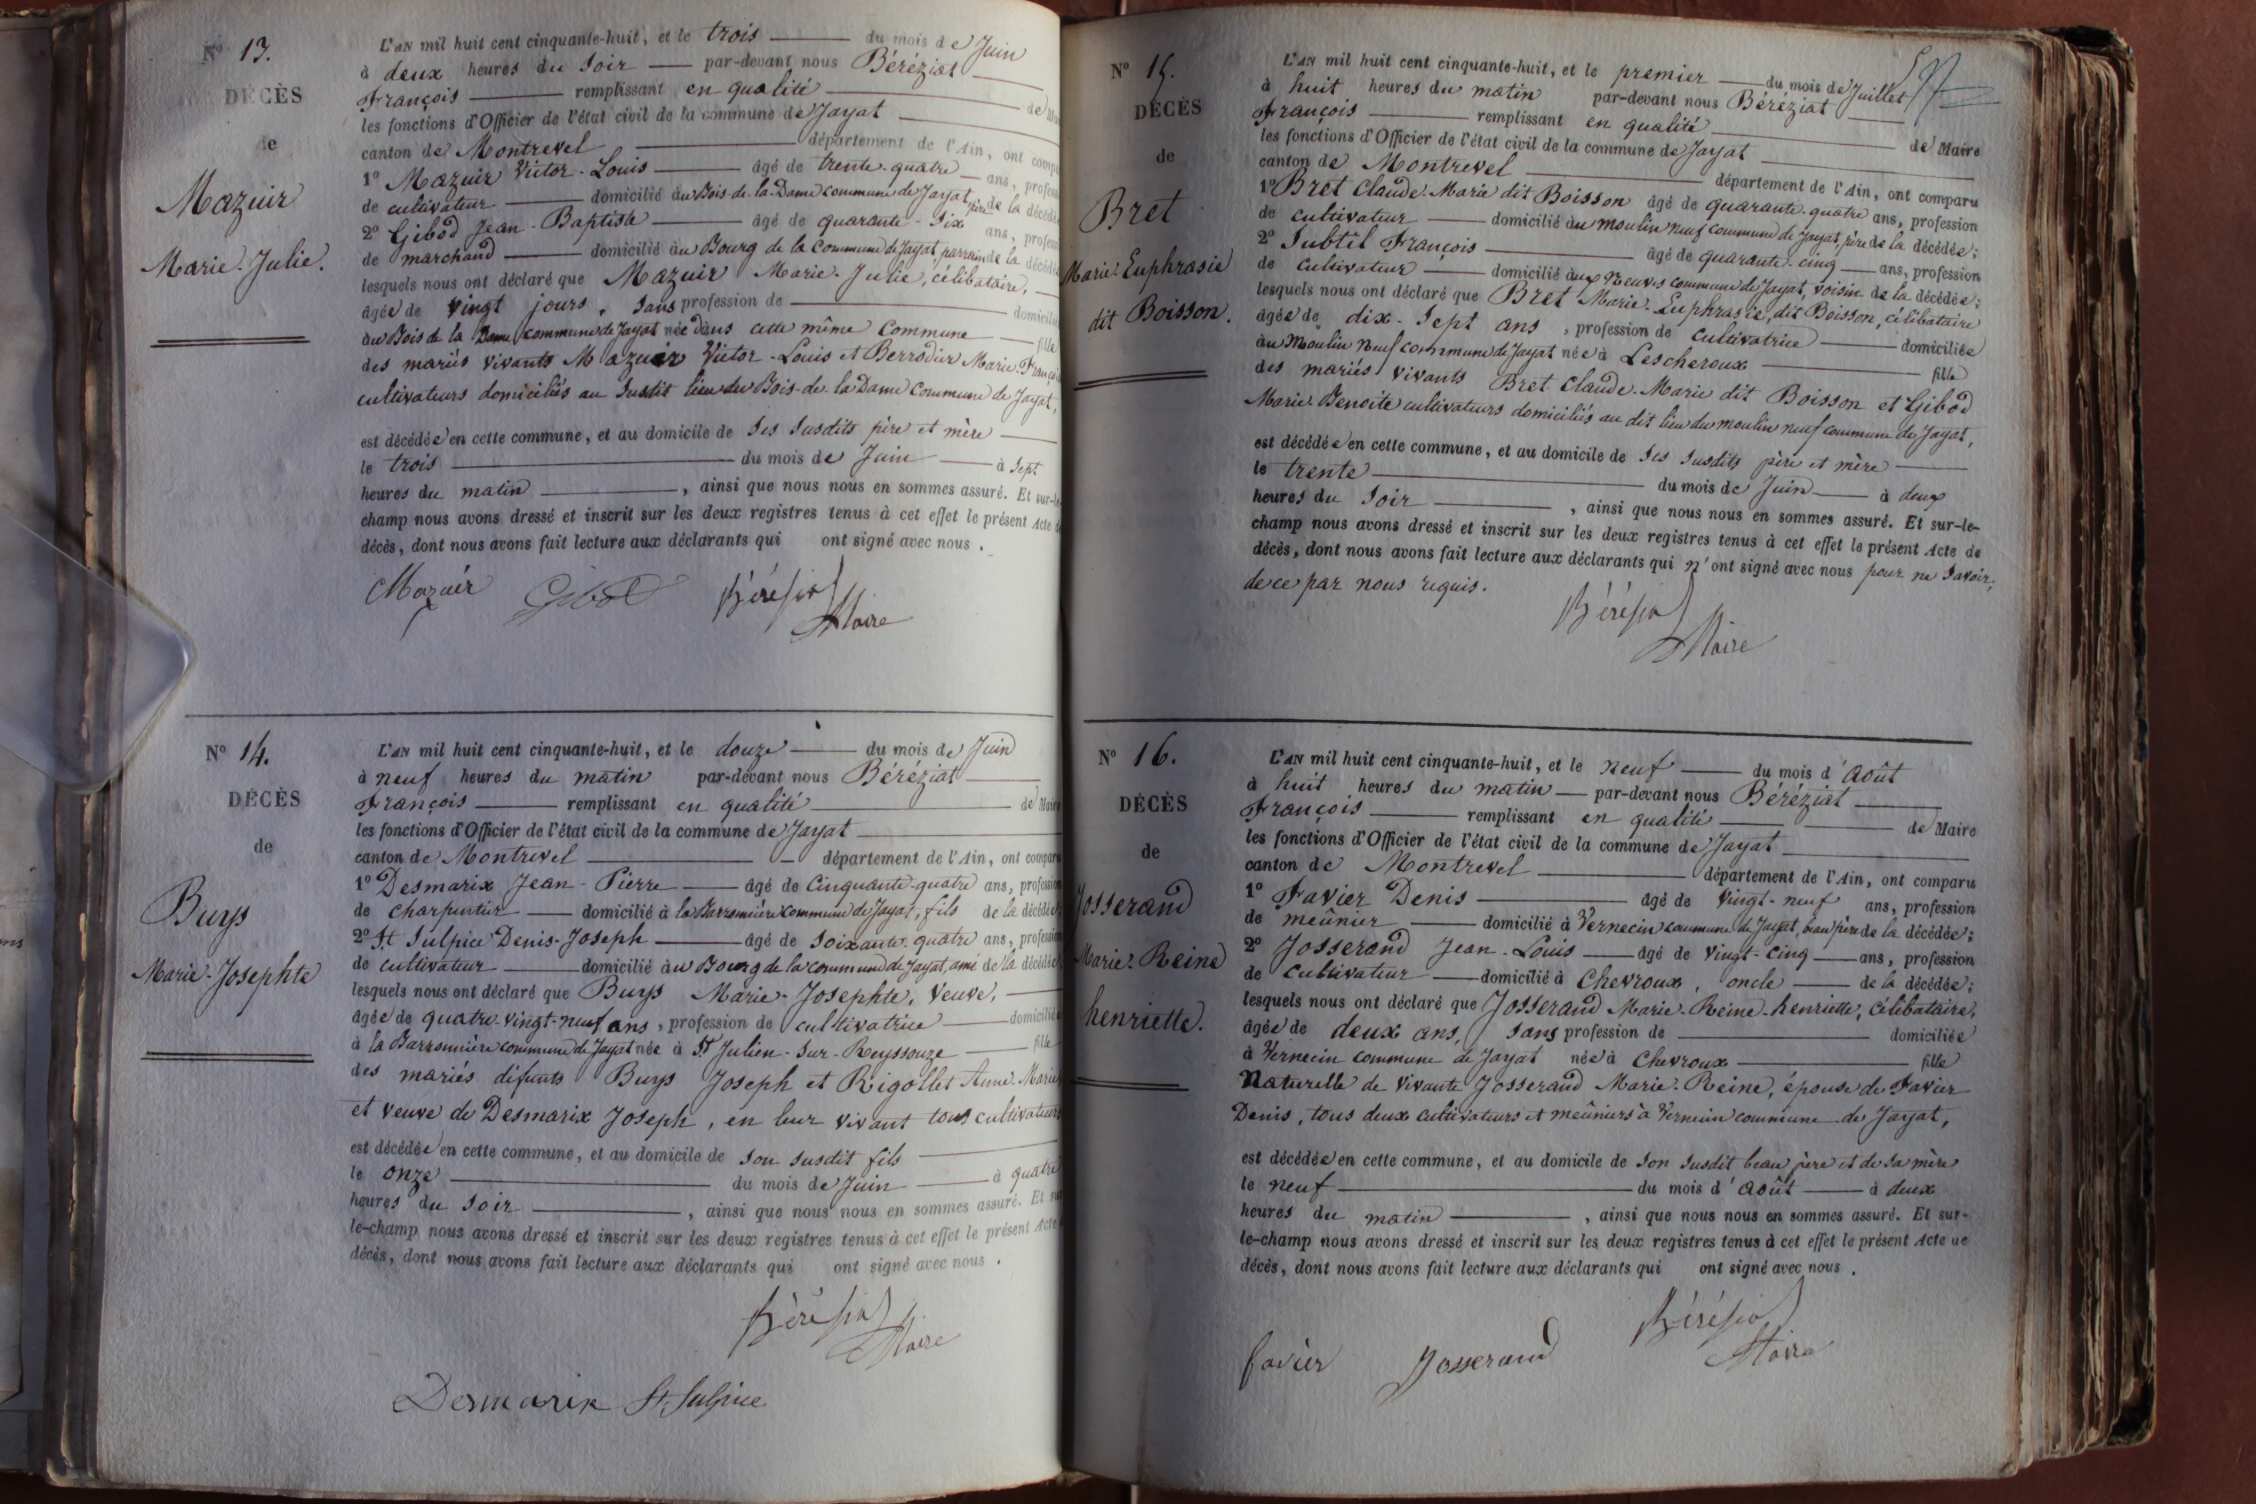 N° 13.
DÉCÈS
de
Mazuir
Marie-Julie.
L'AN mil huit cent cinquante-huit, et le trois du mois de Juin
à deux heures du Soir par-devant nous Béréziat
François remplissant en qualité de
les fonctions d'Officier de l'état civil de la commune de Jayat
canton de Montrevel département de l'Ain, ont
1° Mazuir Victor-Louis âgé de trente-quatre ans,
de cultivateur domicilié au Bois-de-la-Dame commune de Jayat, père de la
2° Gibod Jean-Baptiste âgé de quarante-six ans,
de marchand domicilié au Bourg de la commune de Jayat, parrain de la
lesquels nous ont déclaré que Mazuir Marie-Julie, célibataire,
âgée de vingt jours, sans profession de
au Bois de la Dame commune de Jayat née dans cette même commune fille
des mariés vivants Mazuir Victor-Louis et Berrodier Marie
cultivateurs domiciliés au susdit lieu du Bois-de-la-Dame commune de Jayat,
est décédée en cette commune, et au domicile de ses susdits père et mère
le trois du mois de Juin à Sept
heures du matin, ainsi que nous nous en sommes assuré. Et sur-le-
champ nous avons dressé et inscrit sur les deux registres tenus à cet effet le présent Acte
décès, dont nous avons fait lecture aux déclarants qui ont signé avec nous.
Mazuir Gibod Béréziat
Maire
N° 14.
DÉCÈS
de
Buys
Marie-Josephte
L'AN mil huit cent cinquante-huit, et le douze du mois de Juin
à neuf heures du matin par-devant nous Béréziat
François remplissant en qualité de Maire
les fonctions d'Officier de l'état civil de la commune de Jayat
canton de Montrevel département de l'Ain, ont comparu
1° Desmarix Jean-Pierre âgé de Cinquante-quatre ans, profession
de charpentier domicilié à la Barronnière commune de Jayat, fils de la décédée
2° St Sulpice Denis-Joseph âgé de soixante-quatre ans, profession
de cultivateur domicilié au Bourg de la commune de Jayat, ami de la décédée
lesquels nous ont déclaré que Buys Marie-Josephte, veuve,
âgée de quatre-vingt-neuf ans, profession de cultivatrice domiciliée
à la Barronnière commune de Jayat née à St Julien-sur-Reyssouze fille
des mariés défunts Buys Joseph et Rigollet Anne-Marie
et veuve de Desmarix Joseph, en leur vivant tous cultivateurs
est décédée en cette commune, et au domicile de son susdit fils
le onze du mois de Juin à quatre
heures du soir, ainsi que nous nous en sommes assuré. Et sur
le-champ nous avons dressé et inscrit sur les deux registres tenus à cet effet le présent Acte
décès, dont nous avons fait lecture aux déclarants qui ont signé avec nous.
Béréziat
Maire
Desmarix St Sulpice
N° 15.
DÉCÈS
de
Bret
Marie-Euphrasie
dit Boisson.
L'AN mil huit cent cinquante-huit, et le premier du mois de Juillet
à huit heures du matin par-devant nous Béréziat
François remplissant en qualité de Maire
les fonctions d'Officier de l'état civil de la commune de Jayat
canton de Montrevel département de l'Ain, ont comparu
1° Bret Claude-Marie dit Boisson âgé de quarante-quatre ans, profession
de cultivateur domicilié au moulin neuf commune de Jayat, père de la décédée;
2° Subtil François âgé de quarante-cinq ans, profession
de cultivateur domicilié aux commune de Jayat, voisin de la décédée;
lesquels nous ont déclaré que Bret Marie-Euphrasie, dit Boisson, célibataire
âgée de dix-sept ans, profession de cultivatrice domiciliée
au Moulin neuf commune de Jayat née à Lescheroux fille
des mariés vivants Bret Claude-Marie dit Boisson et Gibod
Marie-Benoite cultivateurs domiciliés au dit lieu du moulin neuf commune de Jayat,
est décédée en cette commune, et au domicile de ses susdits père et mère
le trente du mois de Juin à deux
heures du soir, ainsi que nous nous en sommes assuré. Et sur-le-
champ nous avons dressé et inscrit sur les deux registres tenus à cet effet le présent Acte de
décès, dont nous avons fait lecture aux déclarants qui n'ont signé avec nous pour ne savoir,
de ce par nous requis.
Béréziat
Maire
N° 16.
DÉCÈS
de
Josserand
Marie-Reine
henriette.
L'AN mil huit cent cinquante-huit, et le neuf du mois d'Août
à huit heures du matin par-devant nous Béréziat
François remplissant en qualité de Maire
les fonctions d'Officier de l'état civil de la commune de Jayat
canton de Montrevel département de l'Ain, ont comparu
1° Favier Denis âgé de vingt-neuf ans, profession
de meûnier domicilié à Vernecin commune de Jayat, beau père de la décédée;
2° Josserand Jean-Louis âgé de vingt-cinq ans, profession
de cultivateur domicilié à Chevroux, oncle de la décédée;
lesquels nous ont déclaré que Josserand Marie-Reine-henriette, célibataire,
âgée de deux ans, sans profession de domiciliée
à Vernecin commune de Jayat née à Chevroux fille
Naturelle de vivante Josserand Marie-Reine, épouse de Favier
Denis, tous deux cultivateurs et meûniers à Vernecin commune de Jayat,
est décédée en cette commune, et au domicile de son susdit beau père et de sa mère
le neuf du mois d'Août à deux
heures du matin, ainsi que nous nous en sommes assuré. Et sur-
le-champ nous avons dressé et inscrit sur les deux registres tenus à cet effet le présent Acte de
décès, dont nous avons fait lecture aux déclarants qui ont signé avec nous.
Béréziat
favier Josserand Maire